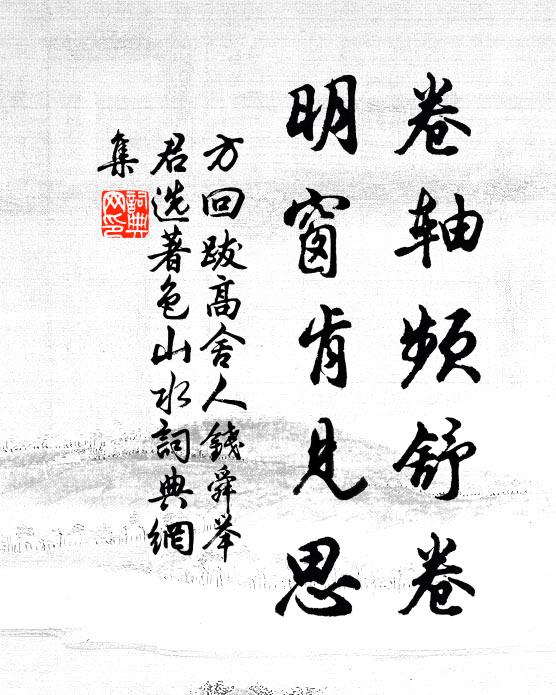 卷轴频舒卷
明窗肯见思
方回跋高舍人錢舜举
君选著色山水詞典網
集
詞典
网印